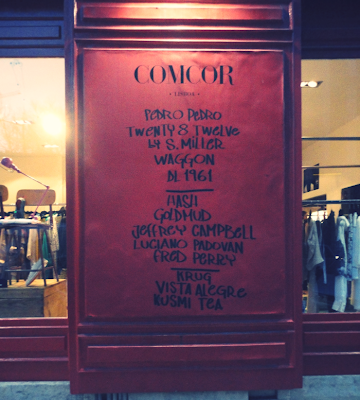 COMCOR
• LISBOA •
PEDRO PEDRO
TWENTY8 TWELVE
by S. MILLER
WAGGON
N. 1961
HASH
GOLDMUD
JEFFREY CAMPBELL
LUCIANO PADOVAN
FRED PERRY
KRUG
VISTA ALEGRE
KUSMI TEA